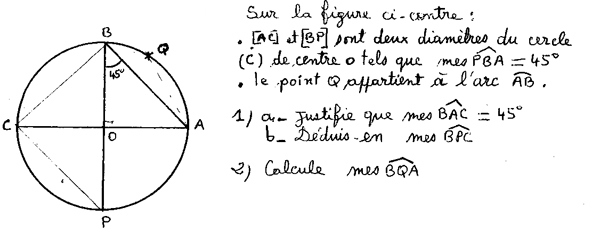 Sur la figure ci-contre :
• [AC] et [BP] sont deux diamètres du cercle
(C) de centre O tels que mes P̂BA = 45°
• le point Q appartient à l'arc A͡B.
1) a_ Justifie que mes B̂AC = 45°
b_ Déduis-en mes B̂PC
2) Calcule mes B̂QA
B
Q
45°
C
O
A
P